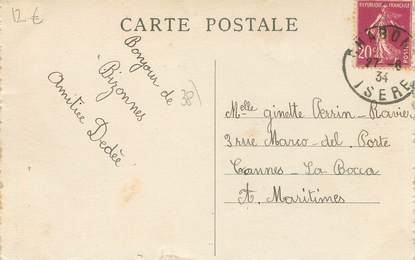 12 €
CARTE POSTALE
REPUBLIQUE FRANÇAISE
20c
POSTES
27 - 8
34
ISERE
Bonjour de
Bizonnes
38
Amitiée Dedée
Melle Ginette Perrin - Ravier
3 rue Marco - del Ponte
Cannes - La Bocca
A. Maritimes